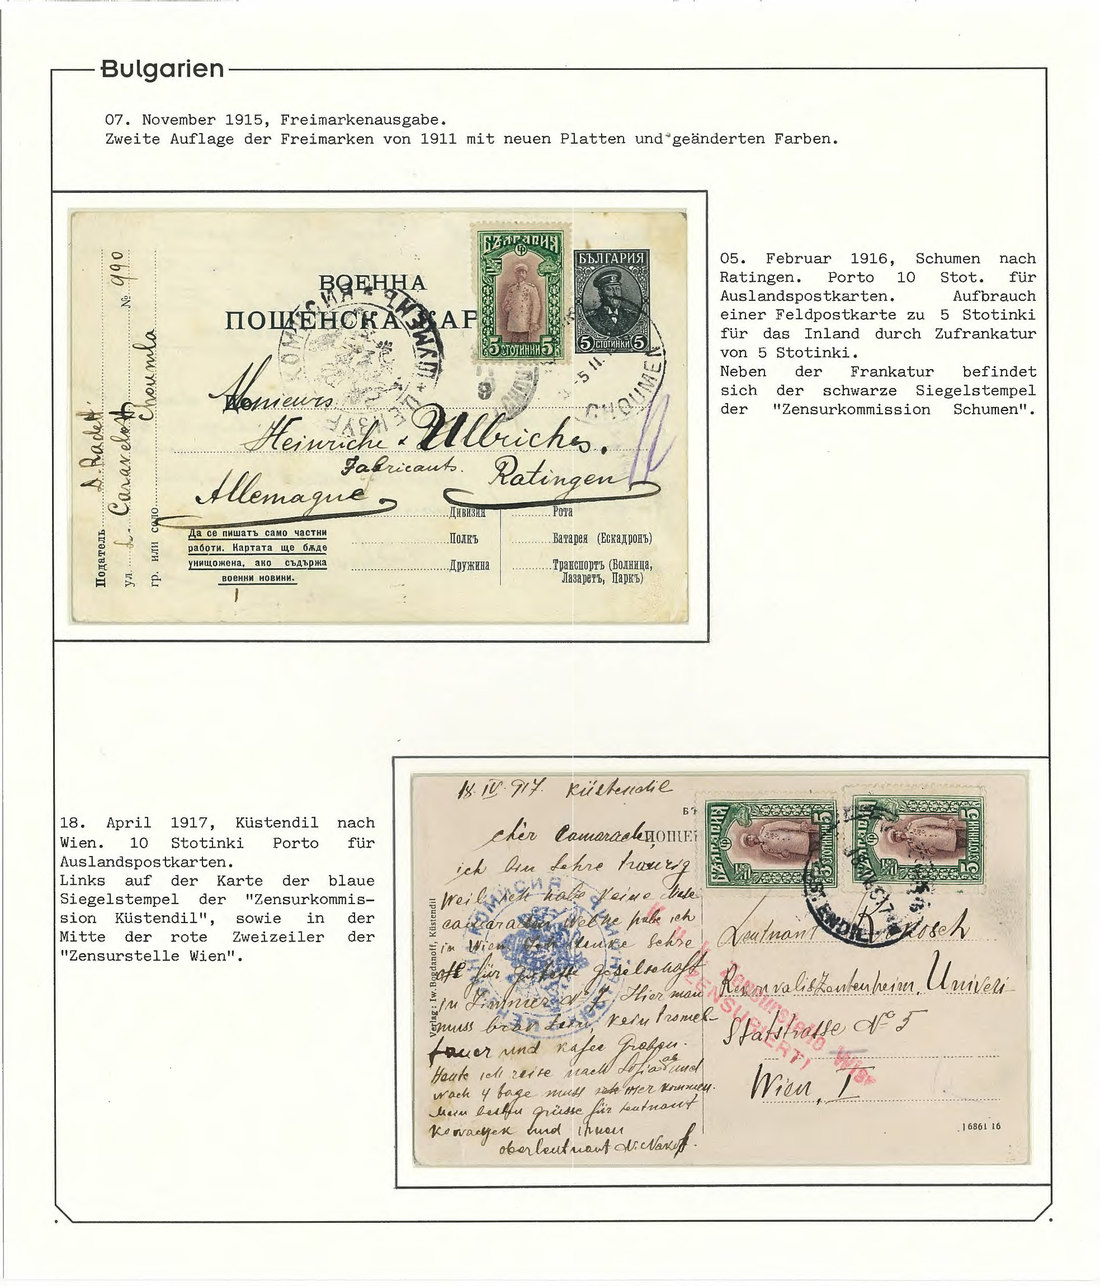 Bulgarien
07. November 1915, Freimarkenausgabe.
Zweite Auflage der Freimarken von 1911 mit neuen Platten und geänderten Farben.
ВОЕННА
ПОЩЕНСКА КАР
БЪЛГАРИЯ
5 СТОТИНКИ 5
БЪЛГАРИЯ
5 СТОТИНКИ 5
CHOUMEN
Messieurs
Heinrichs & Ullrichs.
Fabricants. Ratingen
Allemagne
Податель D. Radeff.
№ 990
ул.
гр. или село Choumla
Да се пишатъ само частни
работи. Картата ще бѫде
унищожена, ако съдържа
военни новини.
Дивизия
Рота
Полкъ
Батарея (Ескадронъ)
Дружина
Транспортъ (Болница,
Лазаретъ, Паркъ)
05. Februar 1916, Schumen nach
Ratingen. Porto 10 Stot. für
Auslandspostkarten. Aufbrauch
einer Feldpostkarte zu 5 Stotinki
für das Inland durch Zufrankatur
von 5 Stotinki.
Neben der Frankatur befindet
sich der schwarze Siegelstempel
der "Zensurkommission Schumen".
18. April 1917, Küstendil nach
Wien. 10 Stotinki Porto für
Auslandspostkarten.
Links auf der Karte der blaue
Siegelstempel der "Zensurkommis-
sion Küstendil", sowie in der
Mitte der rote Zweizeiler der
"Zensurstelle Wien".
18. IV. 917. Küstendil
cher Camarade
ich bin sehre traurig
Weil ich habe keine
camaraden welche habe ich
in Wien. Ich denke sehre
oft für geselschaft
in Zimmer № 7. Hier man
muss brav sein, kein tromel-
feuer und kafee Graben.
Heute ich reise nach Sofia und
nach 4 tage muss ich hier kommen.
Mein besten grüsse für leutnant
und ihnen
oberleutnant
Verlag: Iw. Bogdanoff, Küstendil
БЪЛГАРИЯ
5 СТОТИНКИ 5
БЪЛГАРИЯ
5 СТОТИНКИ 5
Leutnant
Rekonvaliszentenheim, Universi
Statstrasse № 5
Wien, I
Zensurstelle Wien
ZENSURIERT!
16861 16